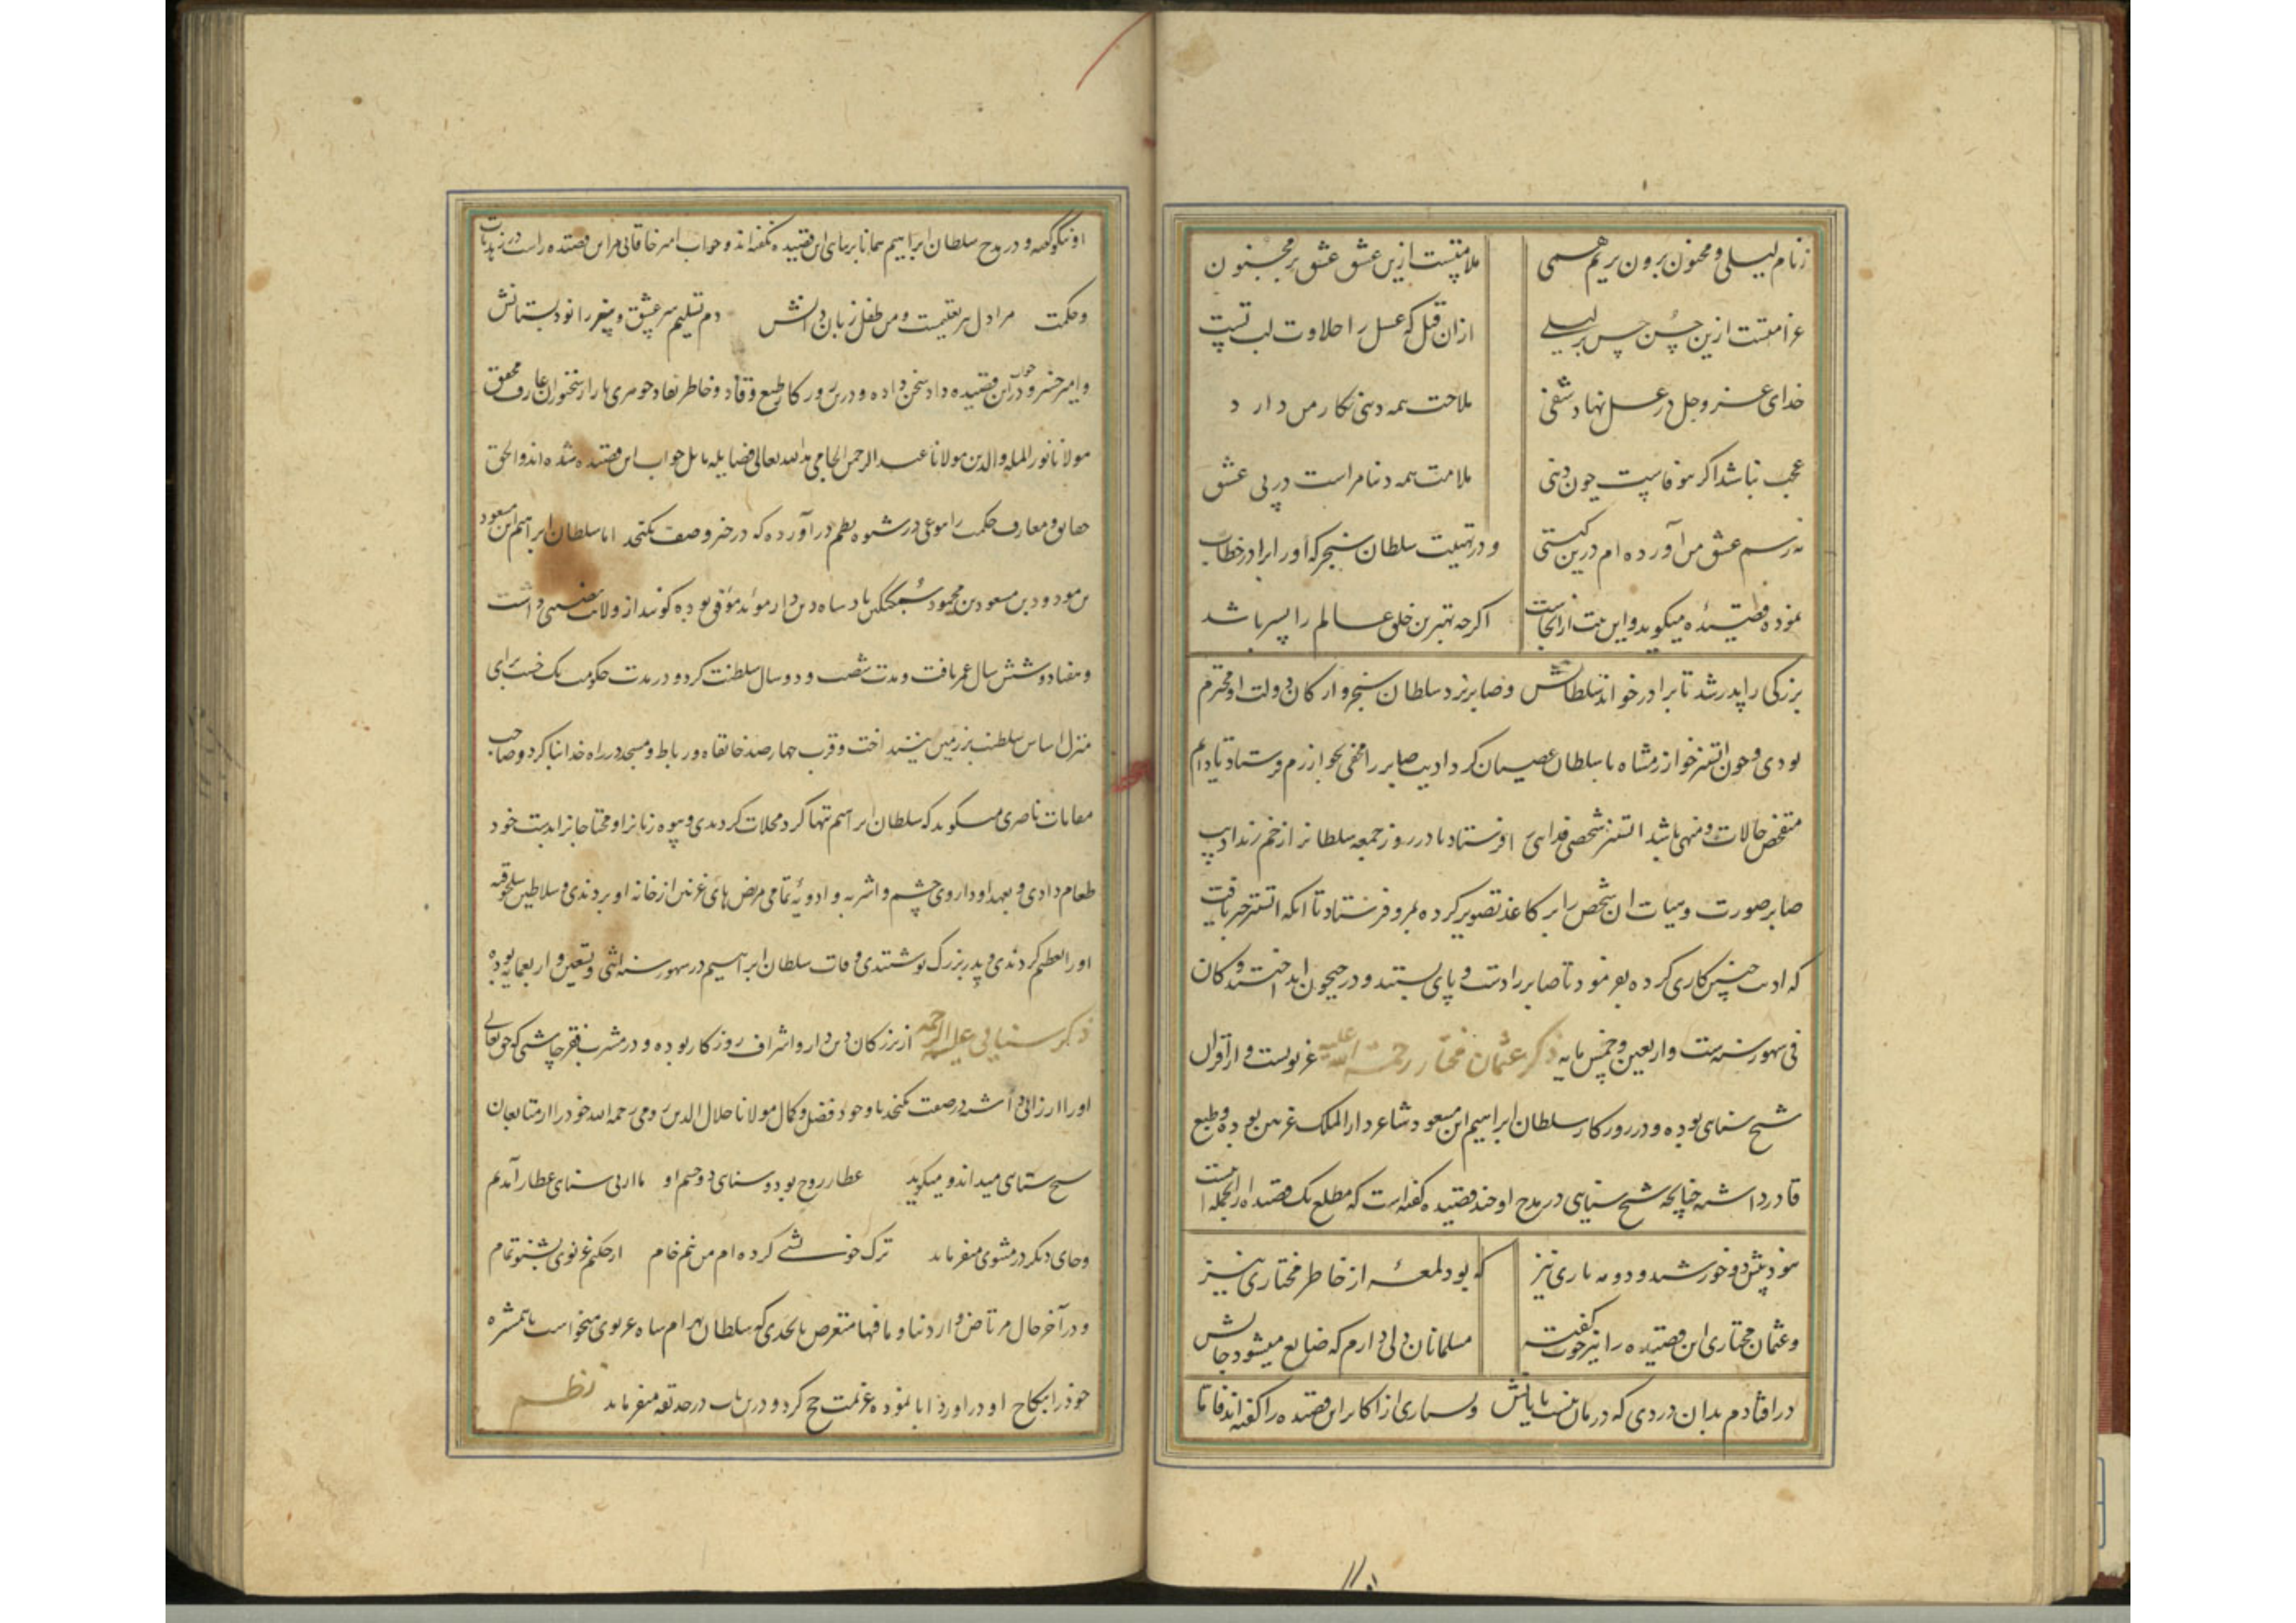 ز نام لیلی و مجنون برون بریم همی
ملامتیست ازین عشق عشق بر مجنون
غرامتست ازین حسن حسن بر لیلی
از آن قبل که عسل را حلاوت لب تست
خدای عز و جل در عسل نهاد شفی
ملاحت همه دنیی نکار من دارد
عجب نباشد اکر بیوفاست چون دنیی
ملامت همه دنیا مراست در پی عشق
نه رسم عشق من آورده ام درین کیتی
و در تهنیت سلطان سنجر که او را برادر خطاب
نموده قصیده میکوید و این بیت از آنجاست
اکرچه بهترین خلق عالم را پسر باشد
بزرکی را پدر شد تا برادر خواند سلطانش و صابر نزد سلطان سنجر و ارکان دولت او محترم
بودی و چون اتسز خوارزمشاه با سلطان عصیان کرد ادیب صابر را مخفی بخوارزم فرستاد تا دایم
متفحص حالات و منهی باشد اتسز شخصی فدایی افرستاد تا در روز جمعه سلطانرا زخم زند ادیب
صابر صورت و هیات آن شخص را بر کاغذ تصویر کرده بمرو فرستاد تا آنکه اتسز خبر یافت
که ادیب چنین کاری کرده بفرمود تا صابر را دست و پای بستند و در جیحون انداختند و کان
فی شهور سنه ست و اربعین و خمس مایه ذکر عثمان مختار رحمة الله علیه غزنویست و از اقران
شیخ سنای بوده و در روزکار سلطان ابراهیم ابن مسعود شاعر دار الملک غزنین بوده و طبع
قادر داشته چنانچه شیخ سنایی در مدح او چند قصیده کفته است که مطلع یک قصیده از آنجمله اینست
نبود پیش دو خورشید و دو مه تاری نیز
که بود لمعه از خاطر مختاری نیز
و عثمان مختاری این قصیده را نیز خوب کفت
مسلمانان دلی دارم که ضایع میشود جانش
در افتادم بدان دردی که درمان نیست پایانش و بسیاری از اکابر این قصیده را کفته اند فاما
او نیکو کفته و در مدح سلطان ابراهیم همانا برسای این قصیده نکفته اند و جواب امیر خاقانی مر این قصیده راست در زهدیات
و حکمت مرا دل پیر تعلیمست و من طفل زبان دانش دم تسلیم سر عشق و سر زانو دبستانش
و امیر خسرو در جواب این قصیده داد سخن داده و درین روزکار طبع وقاد و خاطر نقاد جوهری بازار سخنوران عارف محقق
مولانا نور المله و الدین مولانا عبد الرحمن الجامی مد الله تعالی فضایله مایل جواب این قصیده شده اند و الحق
حقایق و معارف حکمت را بنوعی در شیوه نظم در آورده که در حیز وصف نکنجد اما سلطان ابراهیم ابن مسعود
بن مودود بن مسعود بن محمود سبکتکین پادشاه دین دار موید موفق بوده کویند از ولایت نصیبی داشت
و هفتاد و شش سال عمر یافت و مدت شصت و دو سال سلطنت کرد و در مدت حکومت یک خشت برای
منزل اساس سلطنت بر زمین نینداخت و قرب چهار صد خانقاه و رباط و مسجد در راه خدا بنا کرد و صاحب
مقامات ناصری میکوید که سلطان ابراهیم شبها کرد محلات کردیدی و بیوه زنانرا و محتاجانرا بدست خود
طعام دادی و بعهد او داروی چشم و اشربه و ادویه تمامی مرض های غزنین از خانه او بردندی و سلاطین سلجوقیه
او را تعظیم کردندی و پدر بزرک نوشتندی و وفات سلطان ابراهیم در شهور سنه اثنی و تسعین و اربعمایه بوده
ذکر سنایی علیه الرحمه از بزرکان دین دار و اشراف روزکار بوده و در مشرب فقر چاشنی که حق تعالی
او را ارزانی داشته در صفت نکنجد با وجود فضل و کمال مولانا جلال الدین رومی رحمه الله خود را از متابعان
شیخ سنای میداند و میکوید عطار روح بود و سنای دو چشم او ما از پی سنای و عطار آمدیم
و جای دیکر در مثنوی میفرماید ترک خوشی کرده ام من نیم خام از حکیم غزنوی بشنو تمام
و در آخر حال مرتاض و از دنیا و مافیها متعرض تا بحدی که سلطان بهرام شاه غزنوی میخواست تا همشیره
خود را بنکاح او در آورد ابا نموده عزیمت حج کرد و درین باب در حدیقه میفرماید نظم